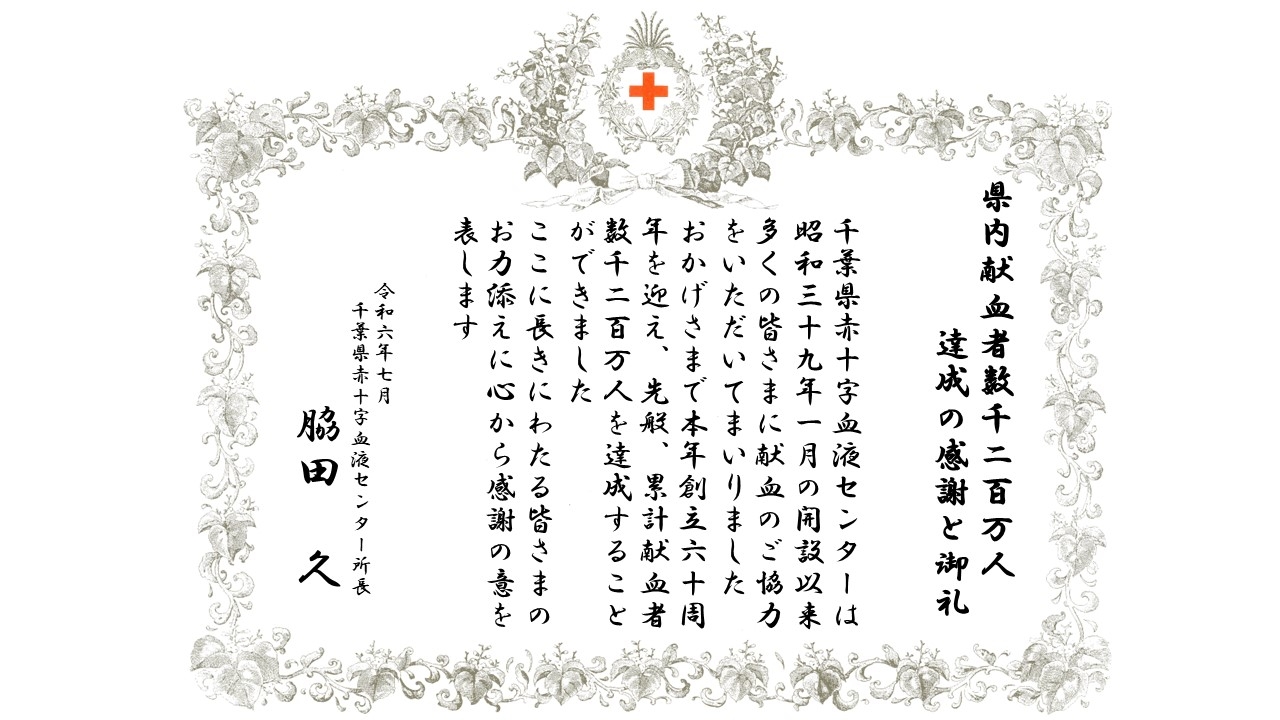 県内献血者数千二百万人
達成の感謝と御礼
千葉県赤十字血液センターは
昭和三十九年一月の開設以来
多くの皆さまに献血のご協力
をいただいてまいりました
おかげさまで本年創立六十周
年を迎え、先般、累計献血者
数千二百万人を達成すること
ができました
ここに長きにわたる皆さまの
お力添えに心から感謝の意を
表します
令和六年七月
千葉県赤十字血液センター所長
脇田 久